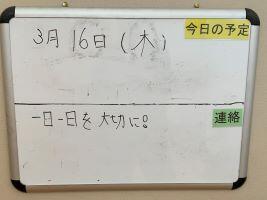 今日の予定
3月16日(木)
連絡
一日一日を大切に!